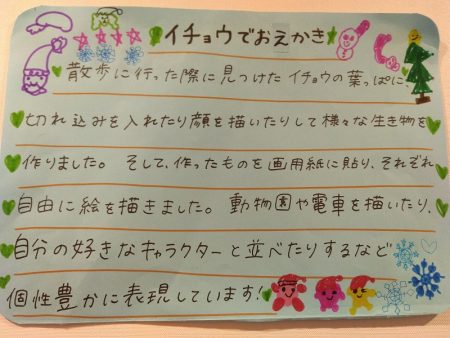 イチョウでおえかき
散歩に行った際に見つけたイチョウの葉っぱに、
切れ込みを入れたり顔を描いたりして様々な生き物を
作りました。そして、作ったものを画用紙に貼り、それぞれ
自由に絵を描きました。動物園や電車を描いたり、
自分の好きなキャラクターと並べたりするなど
個性豊かに表現しています!